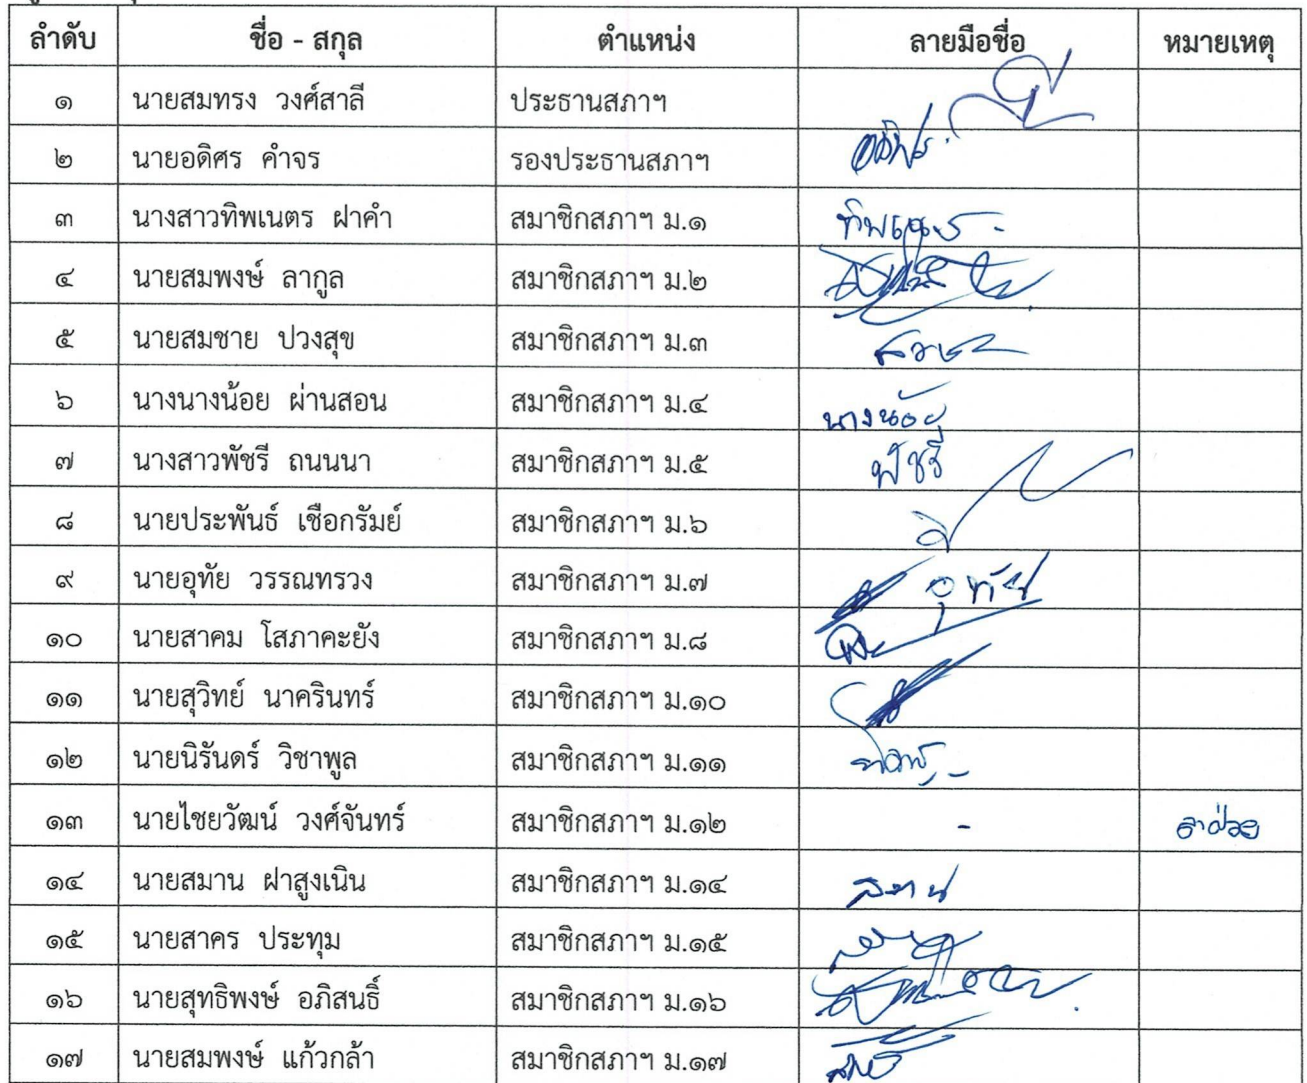 ลำดับ ชื่อ - สกุล ตำแหน่ง ลายมือชื่อ หมายเหตุ
๑ นายสมทรง วงศ์สาลี ประธานสภาฯ
๒ นายอดิศร คำจร รองประธานสภาฯ
๓ นางสาวทิพเนตร ฝาคำ สมาชิกสภาฯ ม.๑ ทิพเนตร
๔ นายสมพงษ์ ลากูล สมาชิกสภาฯ ม.๒
๕ นายสมชาย ปวงสุข สมาชิกสภาฯ ม.๓
๖ นางนางน้อย ผ่านสอน สมาชิกสภาฯ ม.๔ นางน้อย
๗ นางสาวพัชรี ถนนนา สมาชิกสภาฯ ม.๕ พัชรี
๘ นายประพันธ์ เชือกรัมย์ สมาชิกสภาฯ ม.๖
๙ นายอุทัย วรรณทรวง สมาชิกสภาฯ ม.๗ อุทัย
๑๐ นายสาคม โสภาคะยัง สมาชิกสภาฯ ม.๘
๑๑ นายสุวิทย์ นาครินทร์ สมาชิกสภาฯ ม.๑๐
๑๒ นายนิรันดร์ วิชาพูล สมาชิกสภาฯ ม.๑๑
๑๓ นายไชยวัฒน์ วงศ์จันทร์ สมาชิกสภาฯ ม.๑๒ - ลาป่วย
๑๔ นายสมาน ฝาสูงเนิน สมาชิกสภาฯ ม.๑๔ สมาน
๑๕ นายสาคร ประทุม สมาชิกสภาฯ ม.๑๕
๑๖ นายสุทธิพงษ์ อภิสนธิ์ สมาชิกสภาฯ ม.๑๖
๑๗ นายสมพงษ์ แก้วกล้า สมาชิกสภาฯ ม.๑๗